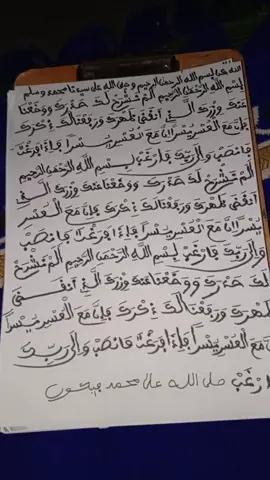 بسم الله الرحمن الرحيم وصلى الله على سيدنا محمد وسلم
بِسْمِ اللَّهِ الرَّحْمَنِ الرَّحِيمِ أَلَمْ نَشْرَحْ لَكَ صَدْرَكَ وَوَضَعْنَا
عَنكَ وِزْرَكَ الَّذِي أَنقَضَ ظَهْرَكَ وَرَفَعْنَا لَكَ ذِكْرَكَ
فَإِنَّ مَعَ الْعُسْرِ يُسْراً إِنَّ مَعَ الْعُسْرِ يُسْراً فَإِذَا فَرَغْتَ
فَانصَبْ وَإِلَى رَبِّكَ فَارْغَبْ بِسْمِ اللَّهِ الرَّحْمَنِ الرَّحِيمِ
أَلَمْ نَشْرَحْ لَكَ صَدْرَكَ وَوَضَعْنَا عَنكَ وِزْرَكَ الَّذِي
أَنقَضَ ظَهْرَكَ وَرَفَعْنَا لَكَ ذِكْرَكَ فَإِنَّ مَعَ الْعُسْرِ
يُسْراً إِنَّ مَعَ الْعُسْرِ يُسْراً فَإِذَا فَرَغْتَ فَانصَبْ
وَإِلَى رَبِّكَ فَارْغَبْ بِسْمِ اللَّهِ الرَّحْمَنِ الرَّحِيمِ أَلَمْ نَشْرَحْ
لَكَ صَدْرَكَ وَوَضَعْنَا عَنكَ وِزْرَكَ الَّذِي أَنقَضَ
ظَهْرَكَ وَرَفَعْنَا لَكَ ذِكْرَكَ فَإِنَّ مَعَ الْعُسْرِ يُسْراً
إِنَّ مَعَ الْعُسْرِ يُسْراً فَإِذَا فَرَغْتَ فَانصَبْ وَإِلَى رَبِّكَ
فَارْغَبْ صلى الله على محمد